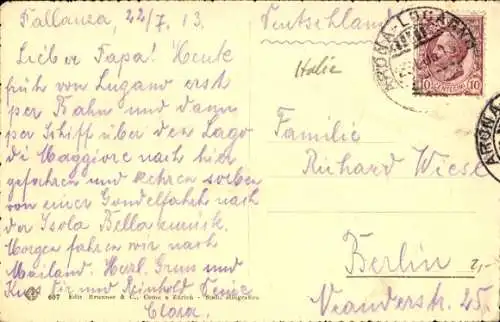 Pallanza, 22/7. 13.
Lieber Papa! Heute
früh von Lugano erst
per Bahn und dann
per Schiff über den Lago
di Maggiore nach hier
gefahren und kehren soeben
von einer Gondelfahrt nach
der Isola Bella zurück.
Morgen fahren wir nach
Mailand. Herzl. Gruss und
Kuss Dir und Reinhold Deine
Clara.
607 Edit. Brunner & C., Como e Zürich - Stab. eliografico
Deutschland
Italie
ARONA-LOCARNO
10 CENTESIMI 10
ARONA
Familie
Richard Wiese
Berlin
2,-
25.